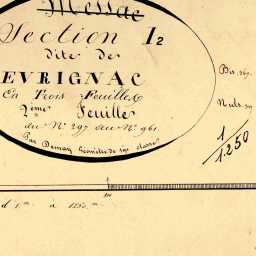 Messac
Section I2
dite de
EVRIGNAC
En Trois Feuilles
2ème Feuille
du N° 297 au N° 961
Par Geomètre de 1ère classe
Bis. 367.
Nuls.
1/1250
d 1 m. à 1250 m.